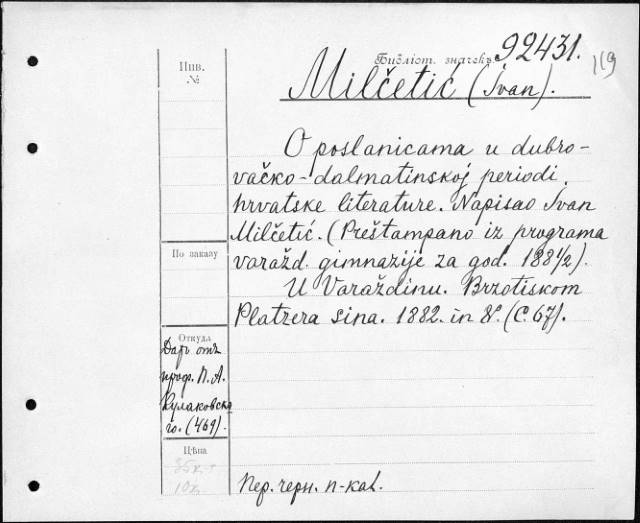 Библіот. значекъ 92431.
119
Milčetić (Ivan).
O poslanicama u dubro-
vačko-dalmatinskoj periodi
hrvatske literature. Napisao Ivan
Milčetić. (Preštampano iz programa
varažd. gimnazije za god. 1881/2).
U Varaždinu. Brzotiskom
Platzera sina. 1882. in 8º. (C. 67).
Инв.
№
По заказу
Откуда
Даръ отъ
проф. П. А.
Кулаковска
го. (469).
Цѣна
35к.
10к.
Пер. черн. п-kal.